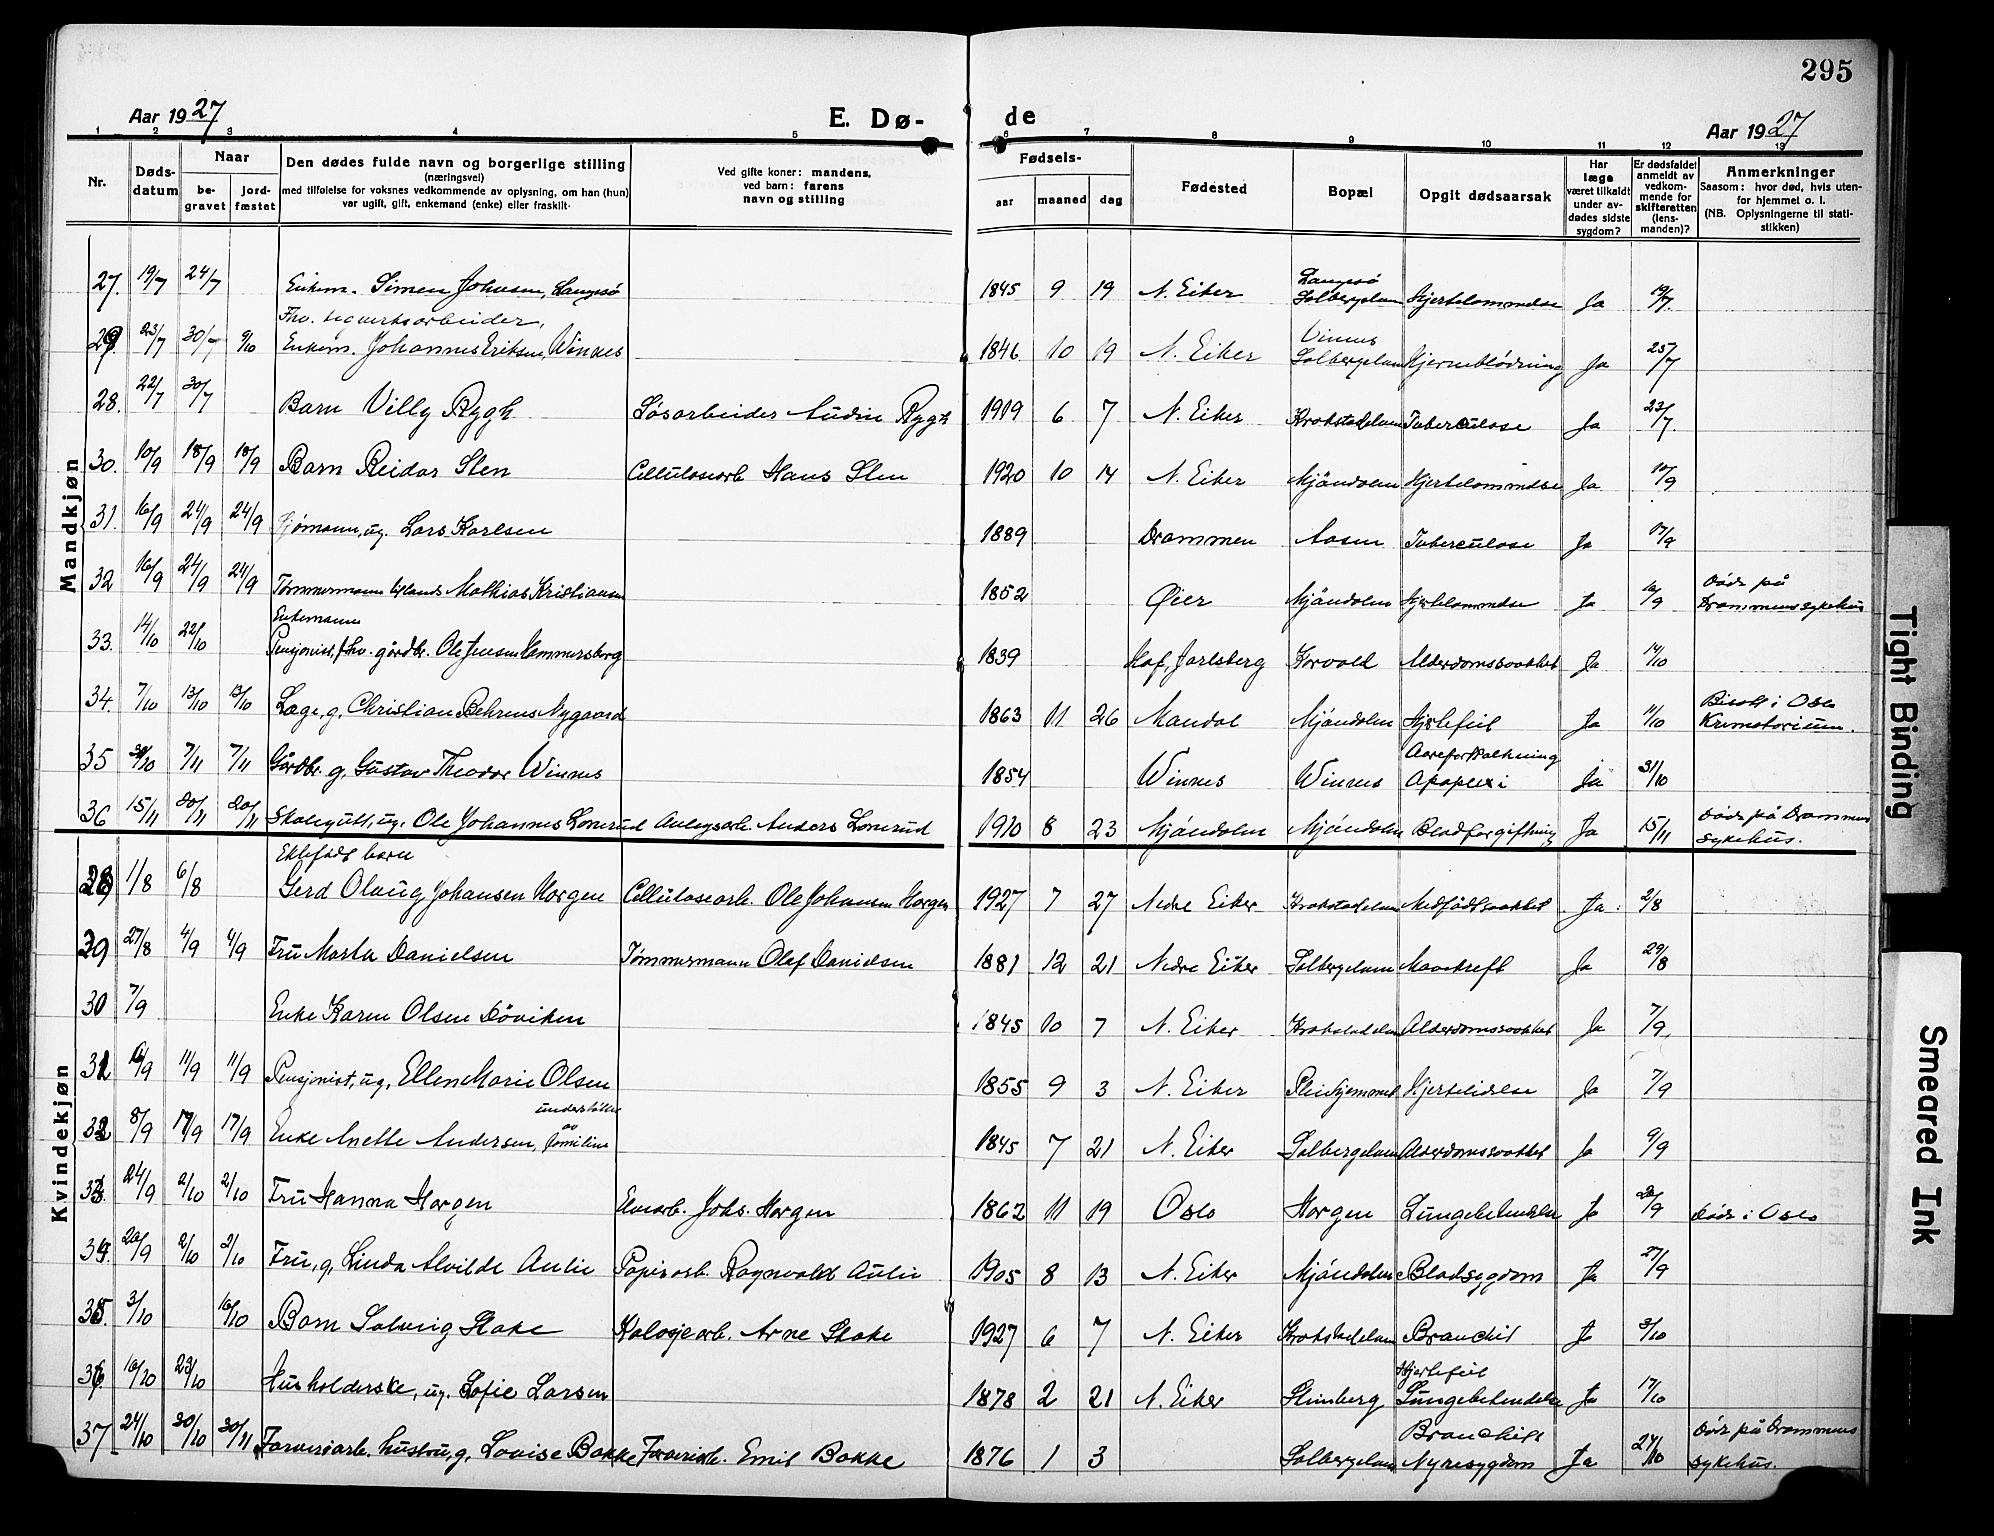 295
Aar 1927
E. Dø-
de
Aar 1927
1 2 3 4 5 6 7 8 9 10 11 12 13
Nr.
Døds-
datum
Naar
be-
gravet
jord-
fæstet
Den dødes fulde navn og borgerlige stilling
(næringsvei)
med tilføielse for voksnes vedkommende av oplysning, om han (hun)
var ugift, gift, enkemand (enke) eller fraskilt.
Ved gifte koner: mandens,
ved barn: farens
navn og stilling
Fødsels-
aar maaned dag
Fødested
Bopæl
Opgit dødsaarsak
Har
læge
været tilkaldt
under av-
dødes sidste
sygdom?
Er dødsfaldet
anmeldt av
vedkom-
mende for
skifteretten
(lens-
manden)?
Anmerkninger
Saasom: hvor død, hvis uten-
for hjemmet o. l.
(NB. Oplysningerne til stati-
stikken)
Mandkjøn
27. 19/7 24/7 Enkem. Simen Johnsen, Langesø 1845 9 19 N. Eiker Langesø Solbergelven Hjertelammelse Ja 19/7.
29. 23/7 30/7 9/10 Fhv. teglverksarbeider, Enkem. Johannes Eriksen, Winnes 1846 10 19 N. Eiker Vinnes Solbergelven Hjerneblødning Ja 25/7
28. 22/7 30/7 Barn Villy Rygh Løsarbeider Audin Rygh 1919 6 7 N. Eiker Krokstadelven Tuberculose Ja 23/7.
30. 10/9 18/9 18/9 Barn Reidar Sten Cellulosearb. Hans Sten 1920 10 14 N. Eiker Mjøndalen Hjertelammelse Ja 10/9
31. 16/9 24/9 24/9 Sjømann, ug. Lars Karlsen 1889 Drammen Aasen Tuberculose Ja 17/9
32 16/9 24/9 24/9 Tømmermann Mathias Kristiansen 1852 Øier Mjøndalen Hjertelammelse Ja 16/9 Død på Drammens sykehus
33. 14/10 22/10 Enkemann Pensjonist, fhv. gårdbr. Ole Jensen Hammersborg 1839 Hof, Jarlsberg Korvald Alderdomssvakhet Ja 14/10
34. 7/10 13/10 13/10 Læge, g, Christian Behrens Nygaard 1863 11 26 Mandal Mjøndalen Hjertefeil Ja 11/10 Bisatt i Oslo Krematorium.
35 30/10 7/11 7/11 Gårdbr. g, Gustav Theodor Winnes 1854 Winnes Winnes Aareforkalkning Apoplexi Ja 31/10
36 15/11 20/11 20/11 Skolegutt, ug. Ole Johannes Lonerud Anlegsarb. Anders Lonerud 1910 8 23 Mjøndalen Mjøndalen Blodforgiftning Ja 15/11 Død på Drammens sykehus.
Kvindekjøn
28 1/8 6/8 Ektefødt barn Gerd Olaug Johansen Horgen Cellulosearb. Ole Johansen Horgen 1927 7 27 Nedre Eiker Krokstadelven Medfødt svakhet Ja 2/8
29 27/8 4/9 4/9 Fru Marta Danielsen Tømmermann Olaf Danielsen 1881 12 21 Nedre Eiker Solbergelven Mavekreft Ja 29/8
30 7/9 Enke Karen Olsen Døviken 1845 10 7 N. Eiker Krokstadelven Alderdomssvakhet Ja 7/9.
31 11/9 11/9 Pensjonist, ug, Ellen Marie Olsen 1855 9 3 N. Eiker Pleiehjemmet Hjertelidelse Ja 7/9
32 8/9 17/9 17/9 Enke Anette Andersen, understøttes av familien 1845 7 21 N. Eiker Solbergelven Alderdomssvakhet Ja 9/9
33 24/9 2/10 2/10 Fru Hanna Horgen Elvearb. Johs. Horgen 1862 11 19 Oslo Horgen Lungebetendelse Ja 26/9 Død i Oslo
34 20/9 2/10 2/10 Fru, g, Linda Alvilde Aulie Papirarb. Ragnvald Aulie 1905 8 13 N. Eiker Mjøndalen Blodsygdom Ja 27/9
35 3/10 16/10 Barn Solveig Stake Kalosjearb. Arne Stake 1927 6 7 N. Eiker Krokstadelven Bronchit Ja 3/10
36 16/10 23/10 Husholderske, ug. Sofie Larsen 1878 2 21 N. Eiker Stenberg Hjertefeil Lungebetendelse Ja 17/10
37 24/10 30/10 30/11 Farveriarb. hustru, g, Lovise Bakke Farveriarb. Emil Bakke 1876 1 3 Solbergelven Bronchitt Nyresygdom Ja 24/10 Død på Drammens sykehus.
Tight Binding
Smeared Ink